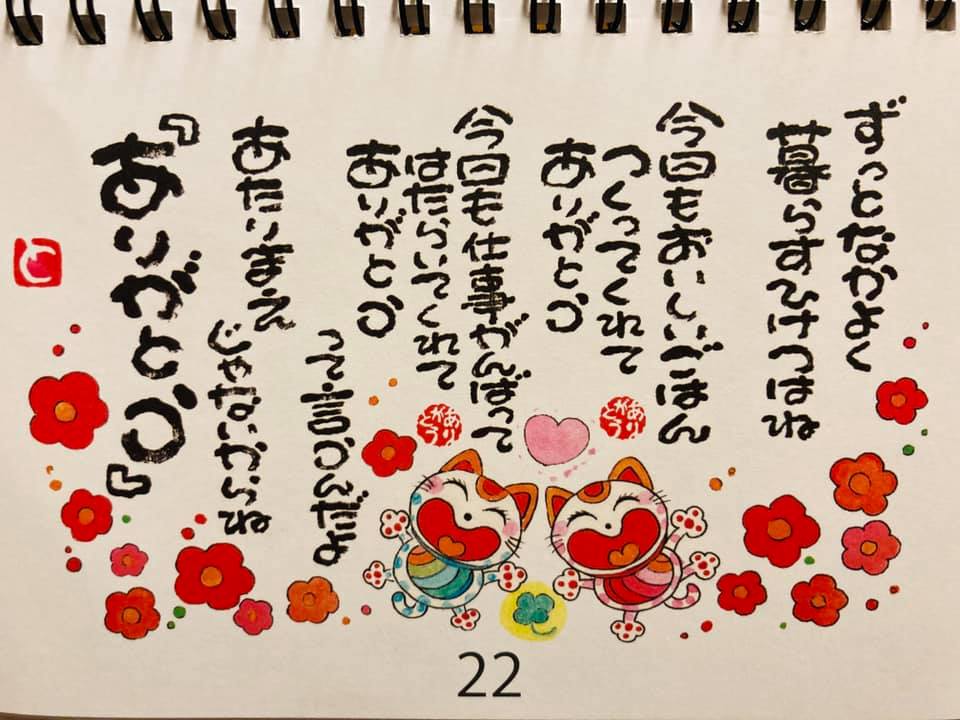 ずっとなかよく
暮らすひけつはね
今日もおいしいごはん
つくってくれて
ありがとう
今日も仕事がんばって
はたらいてくれて
ありがとう
って言うんだよ
あたりまえ
じゃないからね
『ありがとう』
ありがとう
ありがとう
22